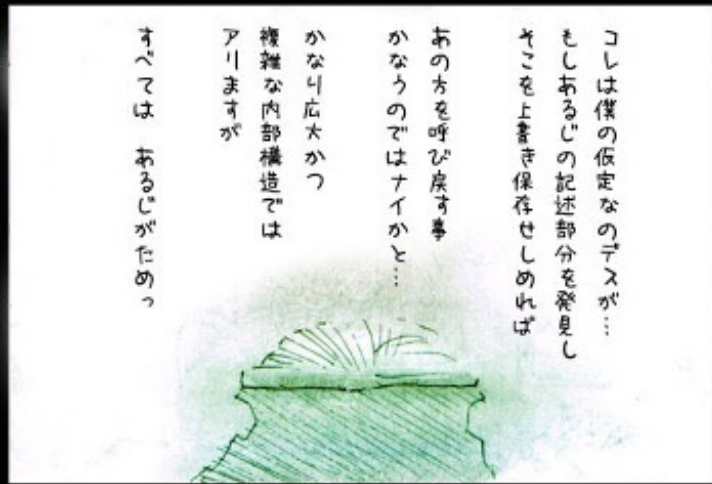 コレは僕の仮定なのデスが…
もしあるじの記述部分を発見し
そこを上書き保存せしめれば
あの方を呼び戻す事
かなうのではナイかと…
かなり広大かつ
複雑な内部構造では
アリますが
すべては あるじがためっ